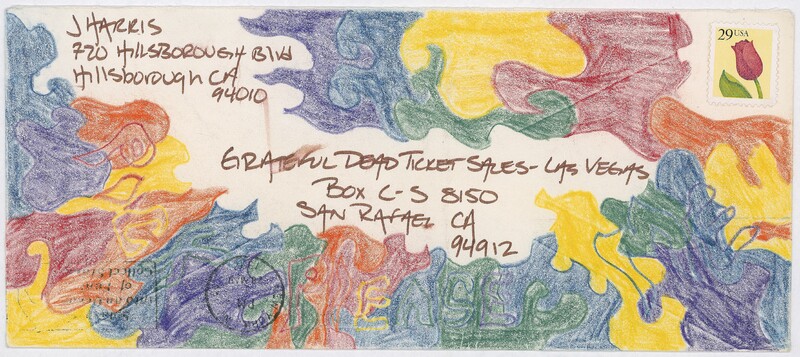 J HARRIS
720 HILLSBOROUGH Blvd
Hillsborough CA
94010
29 USA
GRATEFUL DEAD TICKET SALES - LAS VEGAS
BOX C-S 8150
SAN RAFAEL CA
94912
PLEASE